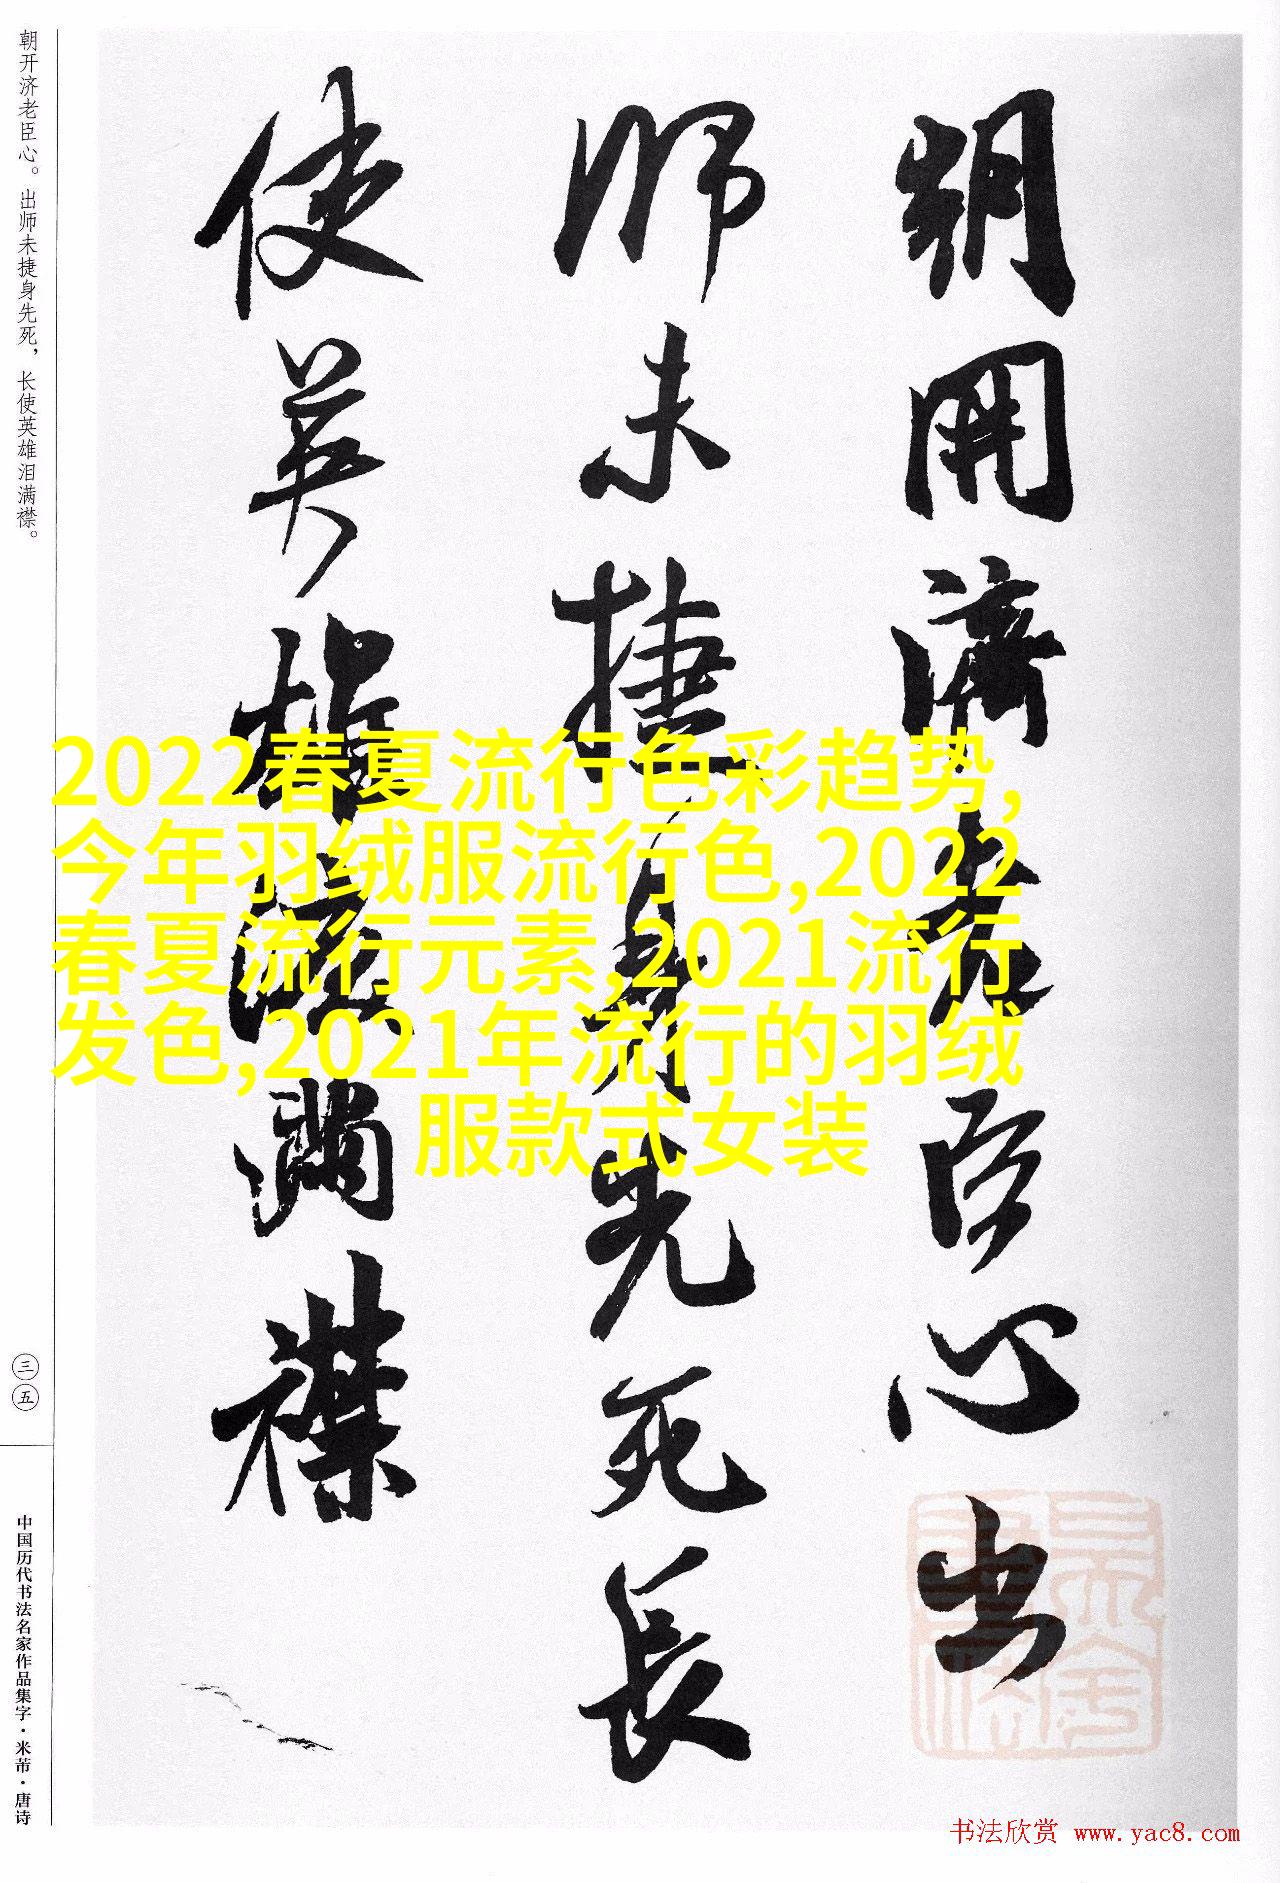 朝開濟老臣心出
师未捷身先死長
使英雄淚滿襟
朝开济老臣心。出师未捷身先死，长使英雄泪满襟。
三五
中国历代书法名家作品集字·米芾·唐诗
2022春夏流行色彩趋势,
今年羽绒服流行色,2022
春夏流行元素,2021流行
发色,2021年流行的羽绒
服款式女装
书法欣赏 www.yac8.com